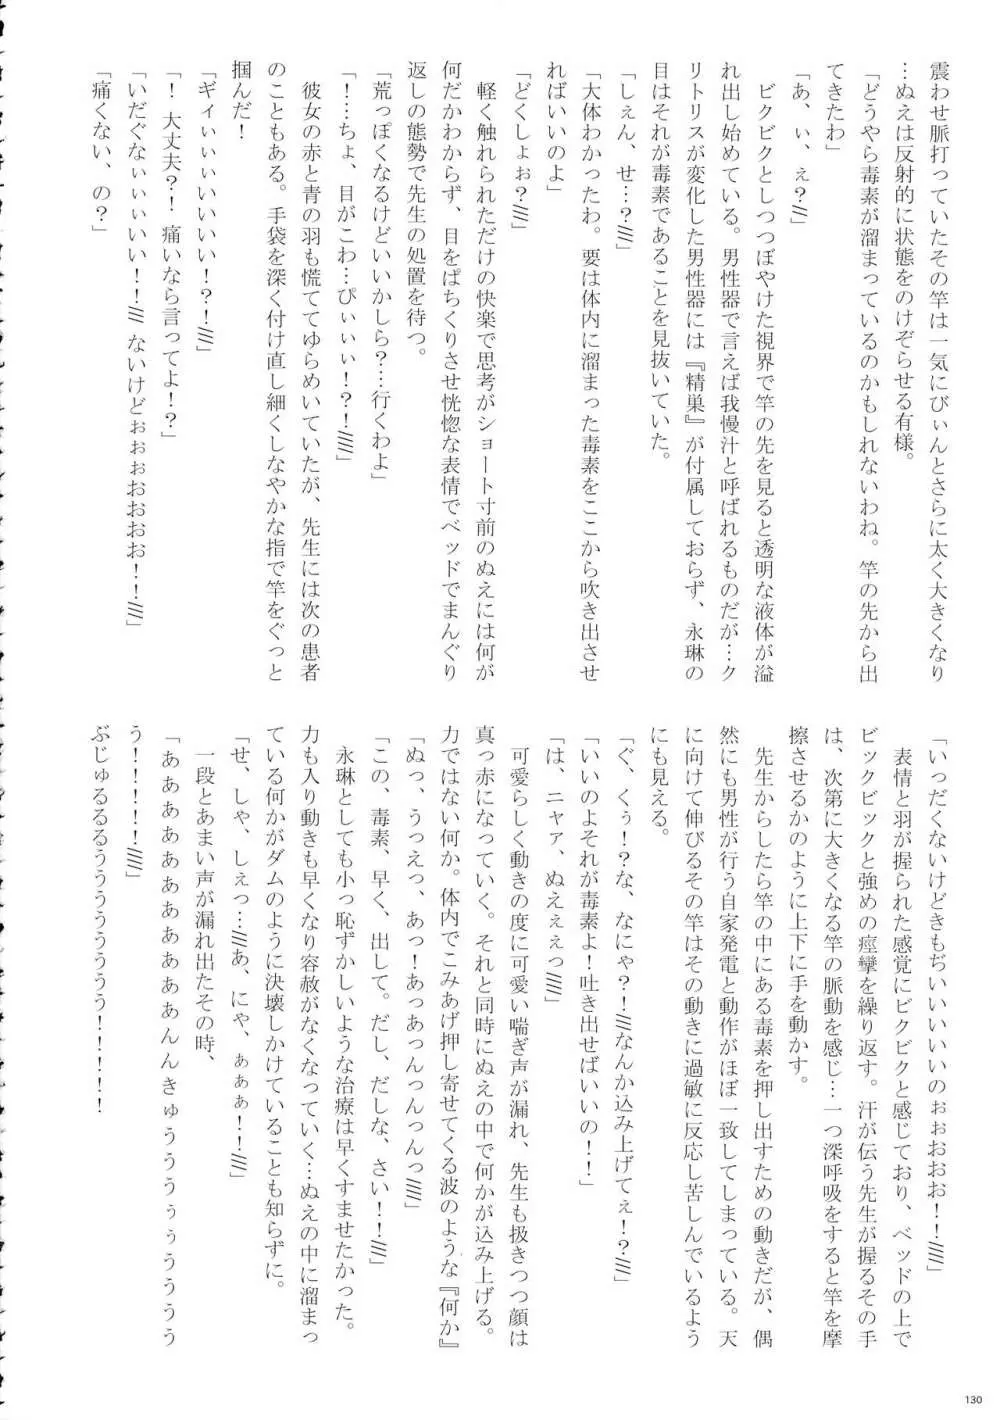 震わせ脈打っていたその竿は一気にびぃんとさらに太く大きくなり
…ぬえは反射的に状態をのけぞらせる有様。
「どうやら毒素が溜まっているのかもしれないわね。竿の先から出
てきたわ」
「あ、ぃ、ぇ？////」
ビクビクとしつつぼやけた視界で竿の先を見ると透明な液体が溢
れ出し始めている。男性器で言えば我慢汁と呼ばれるものだが…ク
リトリスが変化した男性器には『精巣』が付属しておらず、永琳の
目はそれが毒素であることを見抜いていた。
「しぇん、せ…？////」
「大体わかったわ。要は体内に溜まった毒素をここから吹き出させ
ればいいのよ」
「どくしょぉ？////」
軽く触れられただけの快楽で思考がショート寸前のぬえには何が
何だかわからず、目をぱちくりさせ恍惚な表情でベッドでまんぐり
返しの態勢で先生の処置を待つ。
「荒っぽくなるけどいいかしら？…行くわよ」
「！…ちょ、目がこわ…ぴぃぃぃ！？！////」
彼女の赤と青の羽も慌ててゆらめいていたが、先生には次の患者
のこともある。手袋を深く付け直し細くしなやかな指で竿をぐっと
掴んだ！
「ギィぃぃぃいいいい！？！////」
「！　大丈夫？！　痛いなら言ってよ！？」
「いだぐなぃぃぃいい！！////　ないけどぉぉぉおおおお！！////」
「痛くない、の？」
「いっだくないけどきもぢいいいいいのぉぉおおお！！////」
表情と羽が握られた感覚にビクビクと感じており、ベッドの上で
ビックビックと強めの痙攣を繰り返す。汗が伝う先生が握るその手
は、次第に大きくなる竿の脈動を感じ…一つ深呼吸をすると竿を摩
擦させるかのように上下に手を動かす。
先生からしたら竿の中にある毒素を押し出すための動きだが、偶
然にも男性が行う自家発電と動作がほぼ一致してしまっている。天
に向けて伸びるその竿はその動きに過敏に反応し苦しんでいるよう
にも見える。
「ぐ、くぅ！？な、なにゃ？！////なんか込み上げてぇ！？////」
「いいのよそれが毒素よ！吐き出せばいいの！！」
「は、ニャァ、ぬえぇぇっ////」
可愛らしく動きの度に可愛い喘ぎ声が漏れ、先生も扱きつつ顔は
真っ赤になっていく。それと同時にぬえの中で何かが込み上げる。
力ではない何か。体内でこみあげ押し寄せてくる波のような『何か』
「ぬっ、うっえっ、あっ！あっあっんっんっんっ////」
「この、毒素、早く、出して。だし、だしな、さい！！////」
永琳としても小っ恥ずかしいような治療は早くすませたかった。
力も入り動きも早くなり容赦がなくなっていく…ぬえの中に溜まっ
ている何かがダムのように決壊しかけていることも知らずに。
「せ、しゃ、しぇっ…////あ、にゃ、ぁぁぁ！！////」
一段とあまい声が漏れ出たその時、
「あああああああああああんんきゅううううぅぅうううう
う！！！！！！////」
ぶじゅるるるううううううううう！！！！！
130